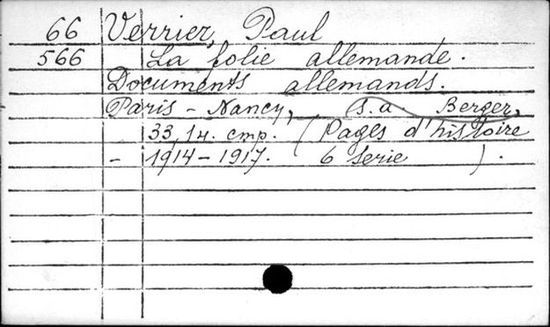 66 Verrier, Paul
566 La folie allemande.
Documents allemands.
Paris - Nancy, s.a Berger,
33,1 н. стр. (Pages d'histoire
- 1914-1917. 6 serie ).